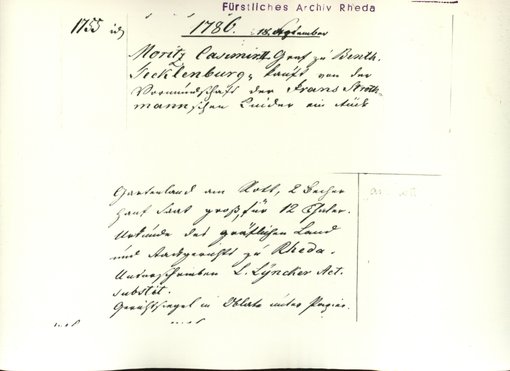 Fürstliches Archiv Rheda
1755 1786. 18. September
Moritz Casimir II. Graf zu Benth.
Tecklenburg, kauft von der
Vormundschaft der Frans Stroth-
mann'schen Kinder ein Stück
Gartenland am Rott, 2 Becher
hanf Saat groß, für 12 Thaler.
Urkunde des gräflichen Land
und Stadtgerichts zu Rheda.
Unterschrieben L. Lyncker Act.
substit.
Gerichtssiegel in Oblate unter Papier.